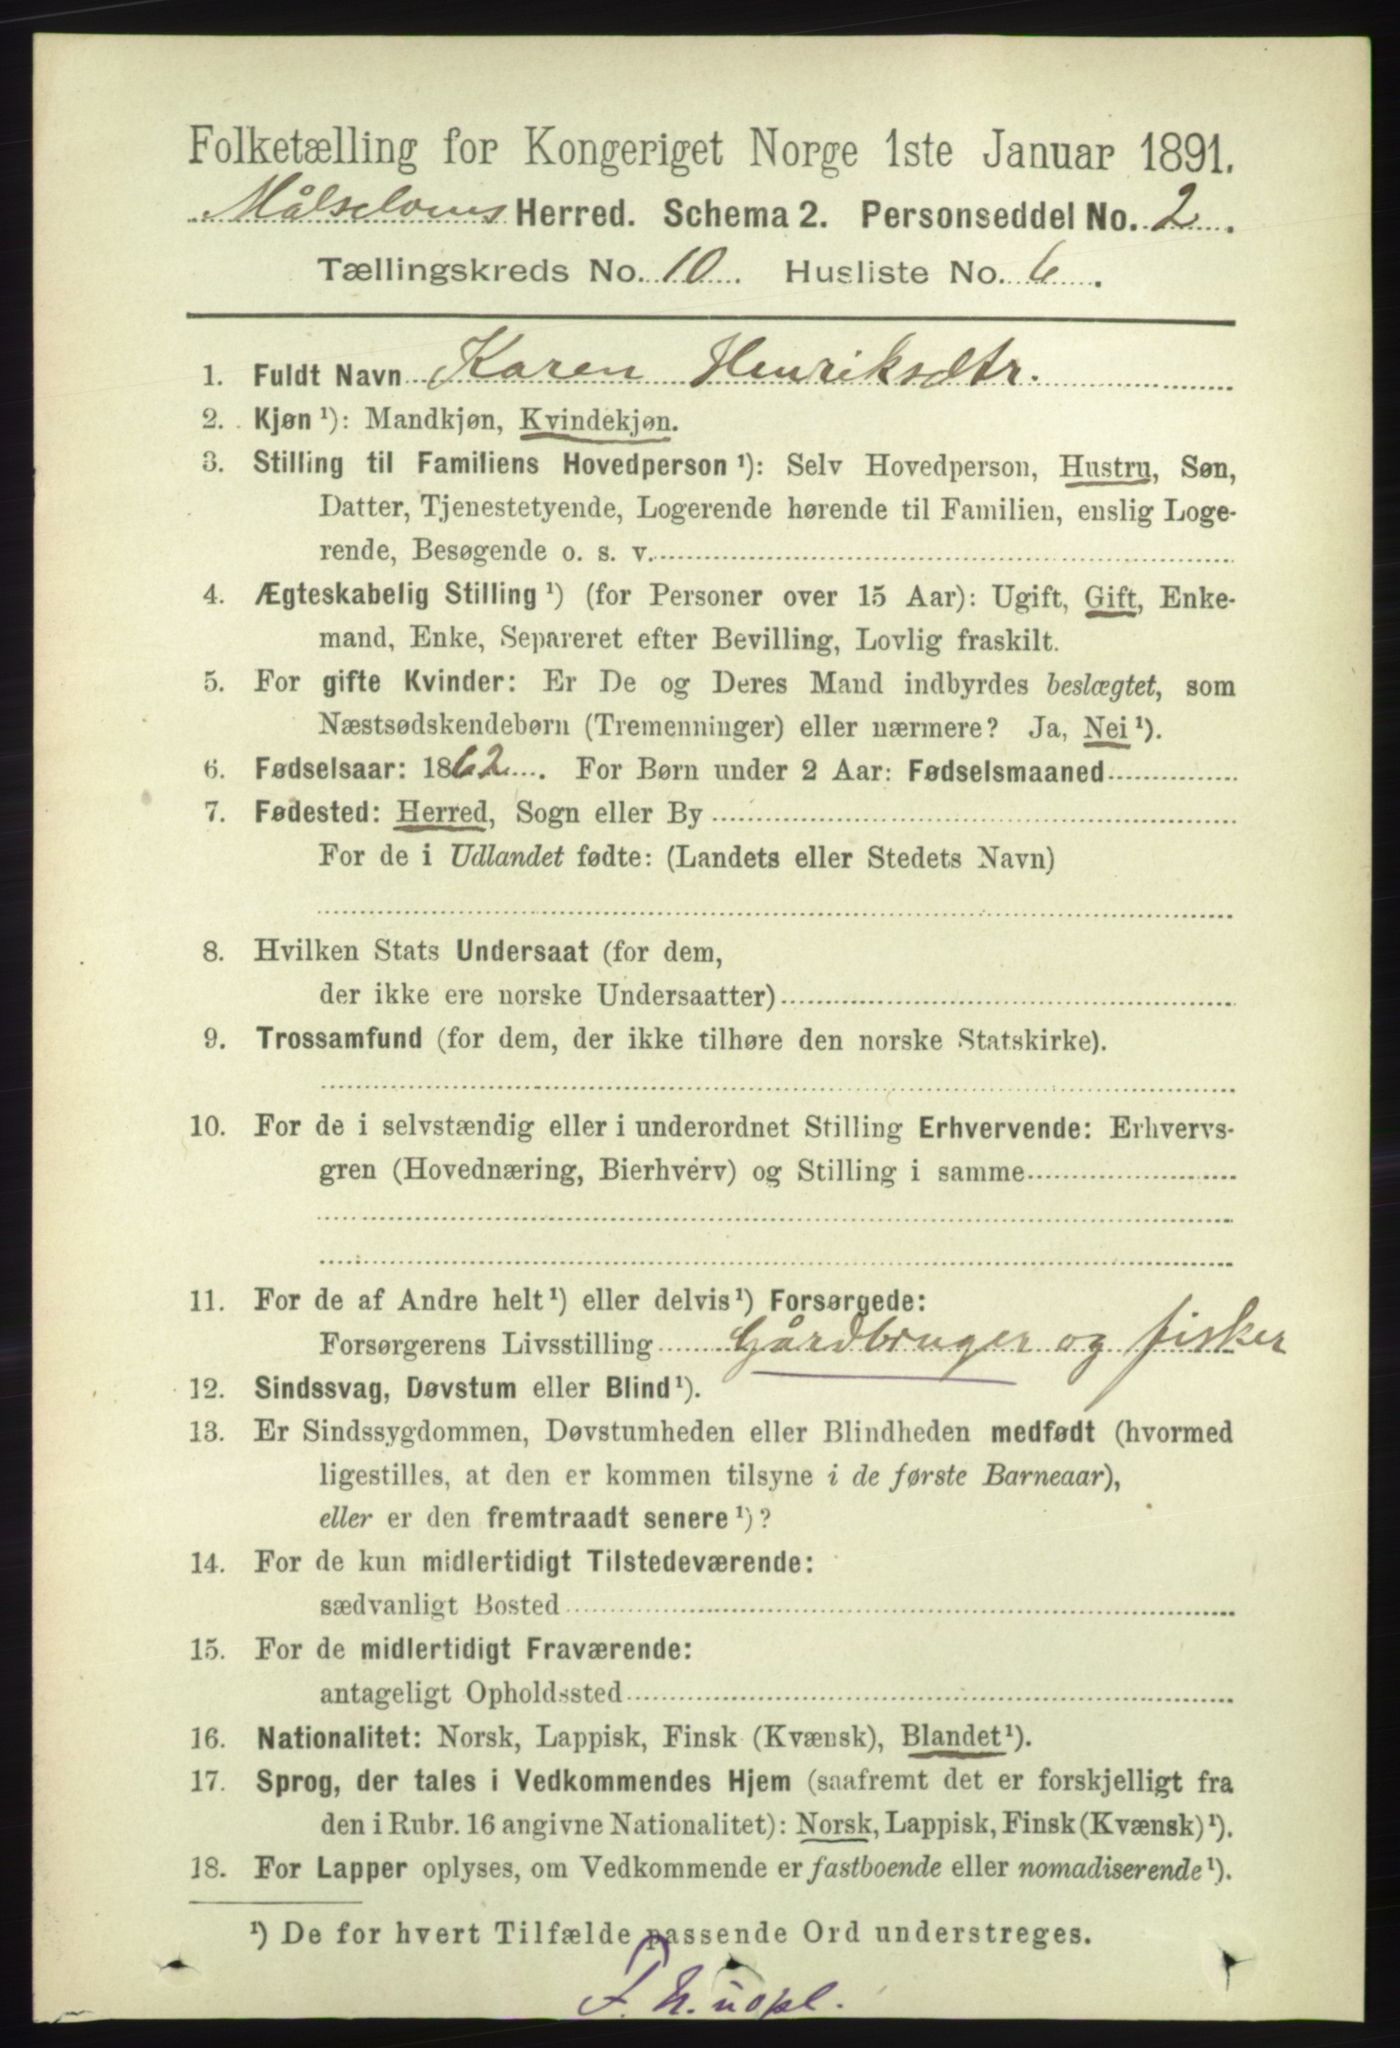 Folketælling for Kongeriget Norge 1ste Januar 1891.
Målselvens Herred. Schema 2. Personseddel No. 2.
Tællingskreds No. 10. Husliste No. 6.
1. Fuldt Navn Karen Henriksdtr.
2. Kjøn ¹): Mandkjøn, Kvindekjøn.
3. Stilling til Familiens Hovedperson ¹): Selv Hovedperson, Hustru, Søn,
Datter, Tjenestetyende, Logerende hørende til Familien, enslig Loge-
rende, Besøgende o. s. v.
4. Ægteskabelig Stilling ¹) (for Personer over 15 Aar): Ugift, Gift, Enke-
mand, Enke, Separeret efter Bevilling, Lovlig fraskilt.
5. For gifte Kvinder: Er De og Deres Mand indbyrdes beslægtet, som
Næstsødskendebørn (Tremenninger) eller nærmere? Ja, Nei ¹).
6. Fødselsaar: 1862. For Børn under 2 Aar: Fødselsmaaned
7. Fødested: Herred, Sogn eller By
For de i Udlandet fødte: (Landets eller Stedets Navn)
8. Hvilken Stats Undersaat (for dem,
der ikke ere norske Undersaatter)
9. Trossamfund (for dem, der ikke tilhøre den norske Statskirke).
10. For de i selvstændig eller i underordnet Stilling Erhvervende: Erhvervs-
gren (Hovednæring, Bierhverv) og Stilling i samme
11. For de af Andre helt ¹) eller delvis ¹) Forsørgede:
Forsørgerens Livsstilling Gårdbruger og fisker
12. Sindssvag, Døvstum eller Blind ¹).
13. Er Sindssygdommen, Døvstumheden eller Blindheden medfødt (hvormed
ligestilles, at den er kommen tilsyne i de første Barneaar),
eller er den fremtraadt senere ¹)?
14. For de kun midlertidigt Tilstedeværende:
sædvanligt Bosted
15. For de midlertidigt Fraværende:
antageligt Opholdssted
16. Nationalitet: Norsk, Lappisk, Finsk (Kvænsk), Blandet ¹).
17. Sprog, der tales i Vedkommendes Hjem (saafremt det er forskjelligt fra
den i Rubr. 16 angivne Nationalitet): Norsk, Lappisk, Finsk (Kvænsk) ¹).
18. For Lapper oplyses, om Vedkommende er fastboende eller nomadiserende ¹).
¹) De for hvert Tilfælde passende Ord understreges.